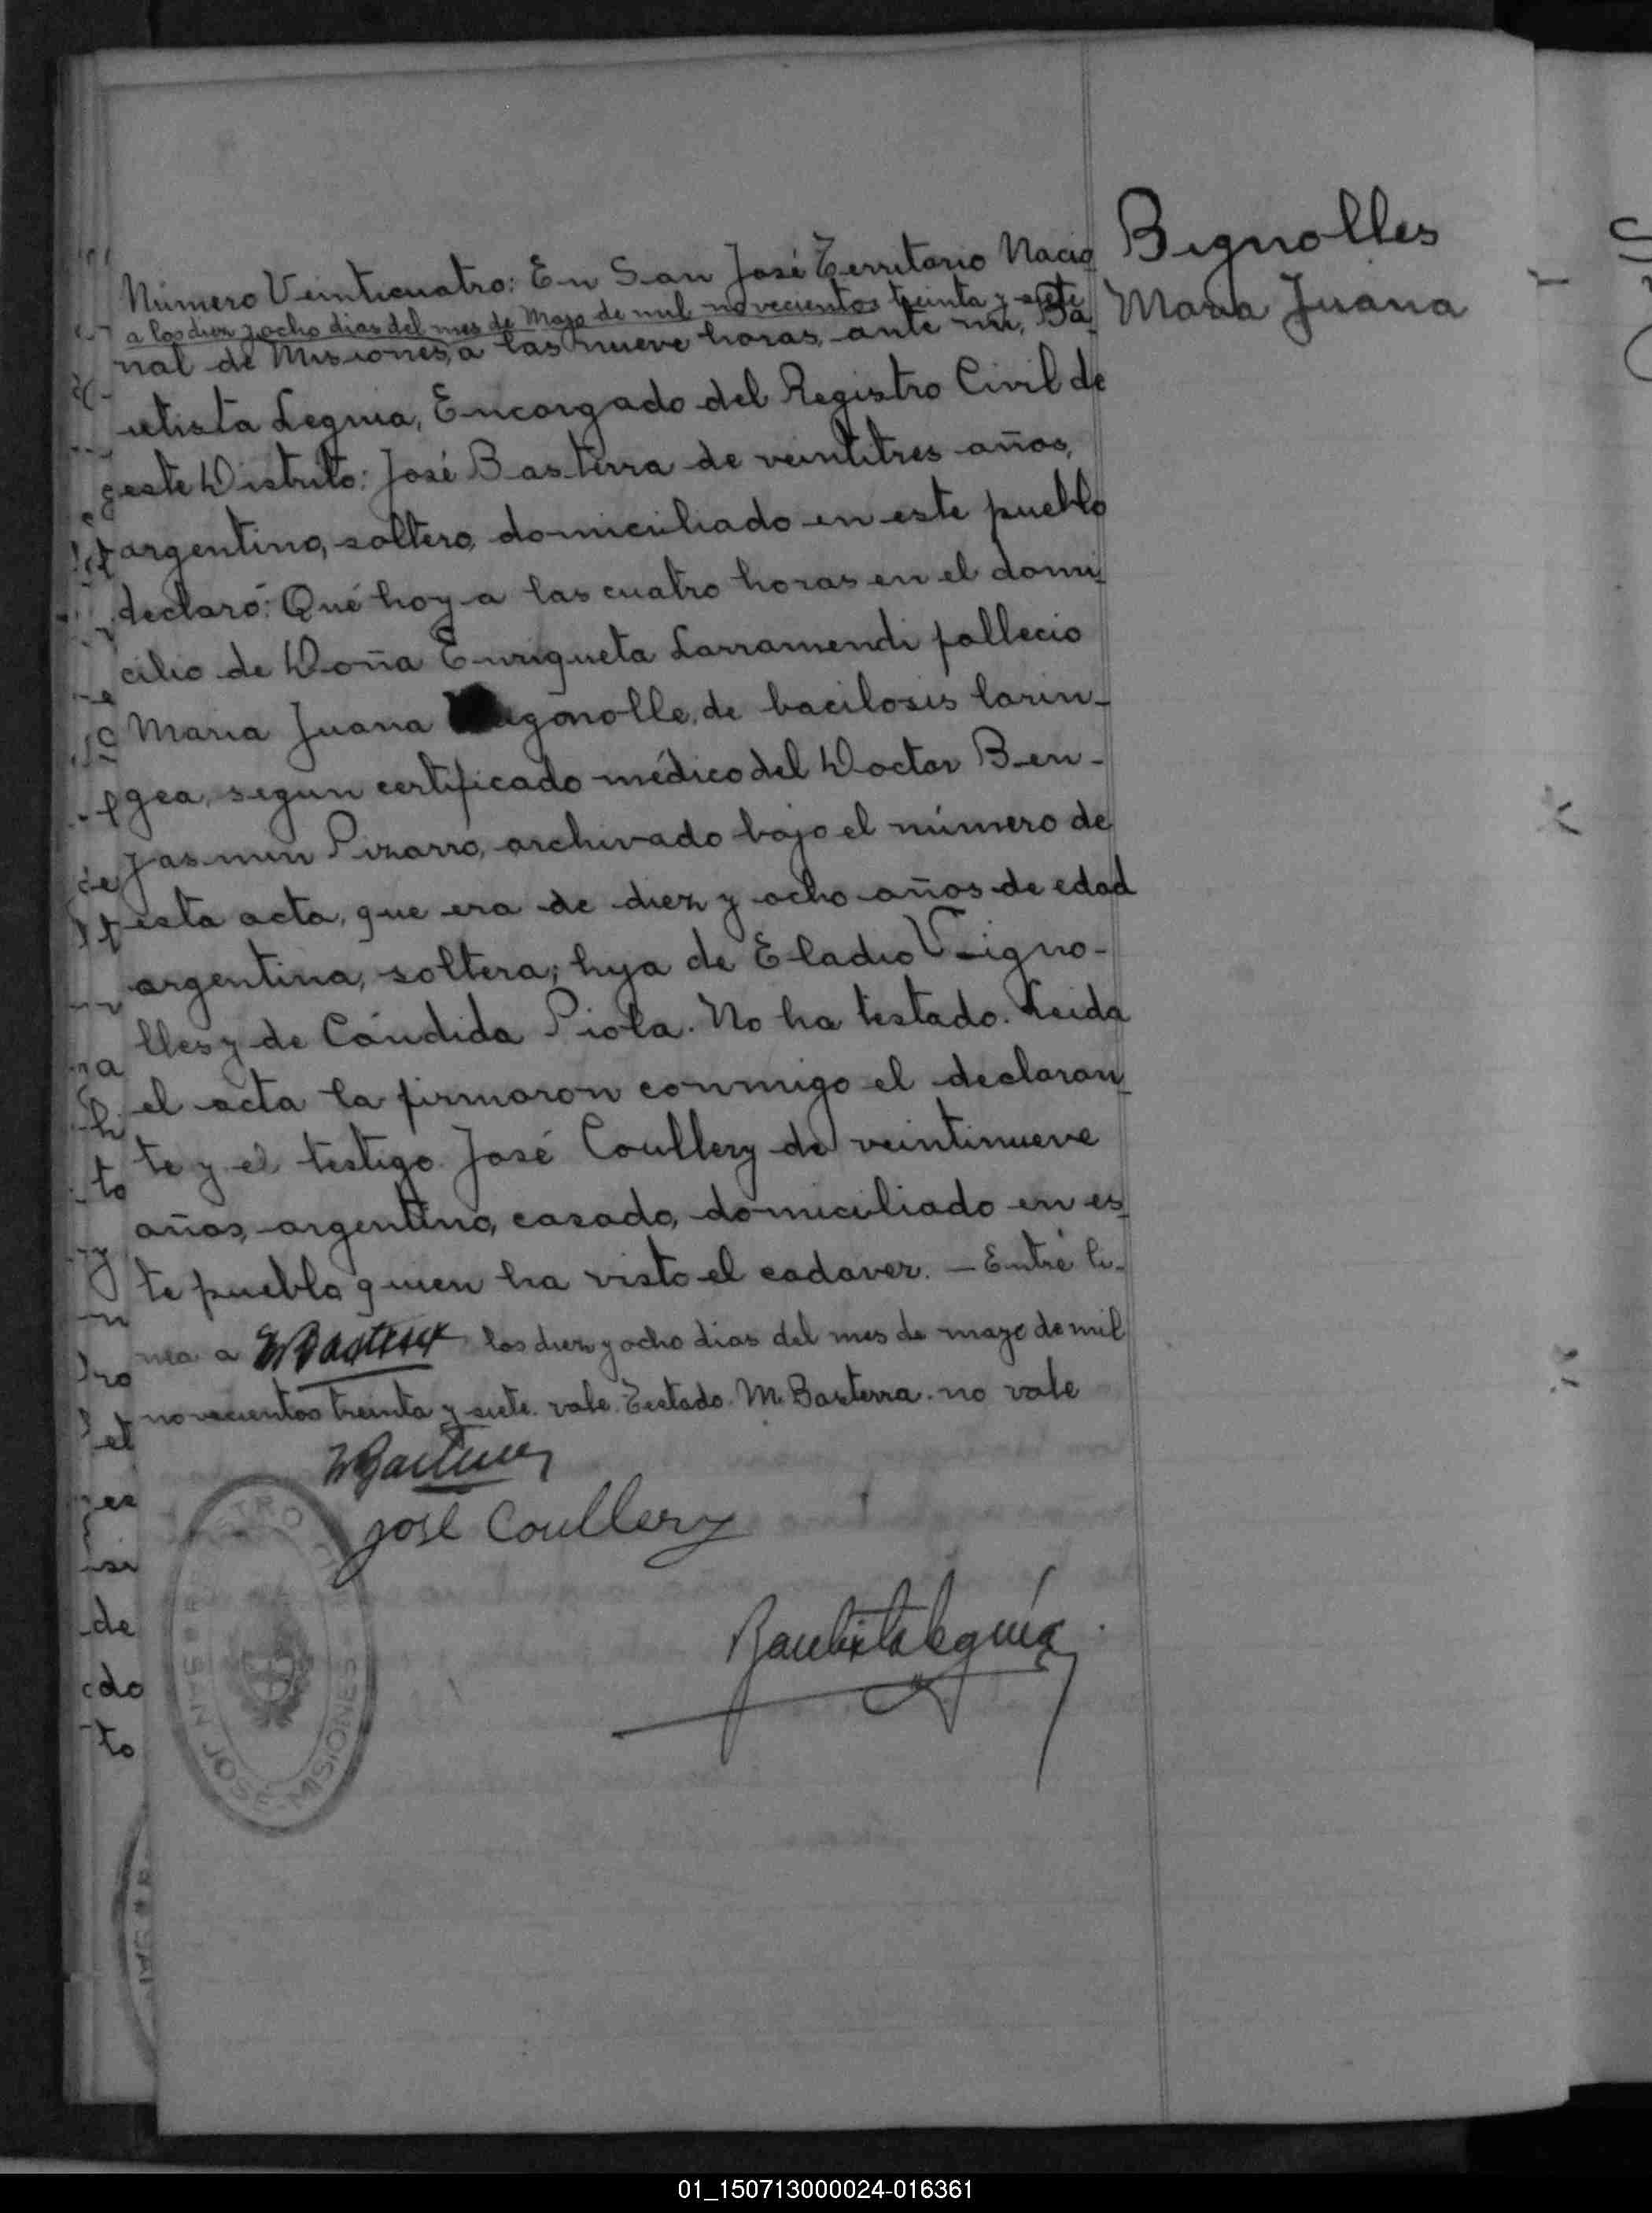 Bignolles
Maria Juana
Número Veinticuatro: En San José Territorio Nacio
a los diez y ocho dias del mes de Mayo de mil novecientos treinta y siete
nal de Misiones, a las nueve horas, ante mi, Ba
utista Leguia, Encargado del Registro Civil de
este Distrito: José Basterra de veintitres años,
argentino, soltero, domiciliado en este pueblo
declaró: Qué hoy a las cuatro horas en el domi
cilio de Doña Enriqueta Larramendi fallecio
Maria Juana de bacilosis larin-
gea, segun certificado médico del Doctor Ben-
jasmin Pizarro, archivado bajo el número de
esta acta, que era de diez y ocho años de edad
argentina, soltera; hija de Eladio Vigno-
lles y de Cándida Piola. No ha testado. Leida
el acta la firmaron conmigo el declaran
te y el testigo José Coullery de veintinueve
años, argentino, casado, domiciliado en es
te pueblo quien ha visto el cadaver. — Entre li-
nea a los diez y ocho dias del mes de mayo de mil
novecientos treinta y siete. vale. Testado. M. Basterra. no vale
José Coullery
Bautista Leguía
SAN JOSÉ - MISIONES
01_150713000024-016361